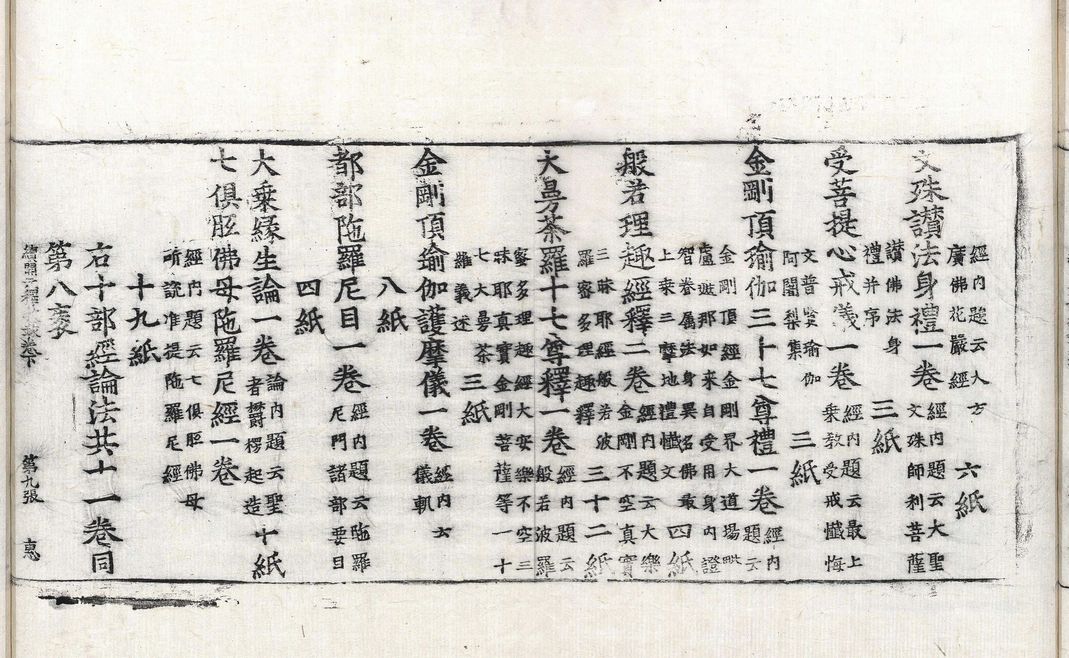 經內題云大方
廣佛花嚴經
六紙
文殊讃法身禮一卷
經內題云大聖
文殊師利菩薩
讃佛法身
禮并序
三紙
受菩提心戒儀一卷
經內題云最上
乘教受戒懺悔
文普賢瑜伽
阿闍梨集
三紙
金剛頂瑜伽三十七尊禮一卷
經內
題云
金剛頂經金剛界大道場毗
盧遮那如來自受用身內證
智眷屬法身異名佛最
上乘三摩地禮懺文
四紙
般若理趣經釋二卷
經內題云大樂
金剛不空真實
三昧耶經般若波
羅蜜多理趣釋
三十二紙
大曼荼羅十七尊釋一卷
經內題云
般若波羅
蜜多理趣經大安樂不空三
昧真實金剛菩薩等一十
七大曼荼
羅義述
三紙
金剛頂瑜伽護摩儀一卷
經內云
儀軌
八紙
都部陁羅尼目一卷
經內題云陁羅
尼門諸部要目
四紙
大乘緣生論一卷
論內題云聖
者欝楞起造
十紙
七俱胝佛母陁羅尼經一卷
經內題云七俱胝佛母
所說准提陁羅尼經
十九紙
右十部經論法共十一卷同
第八袠
續開元釋教錄卷下 第九張 惠